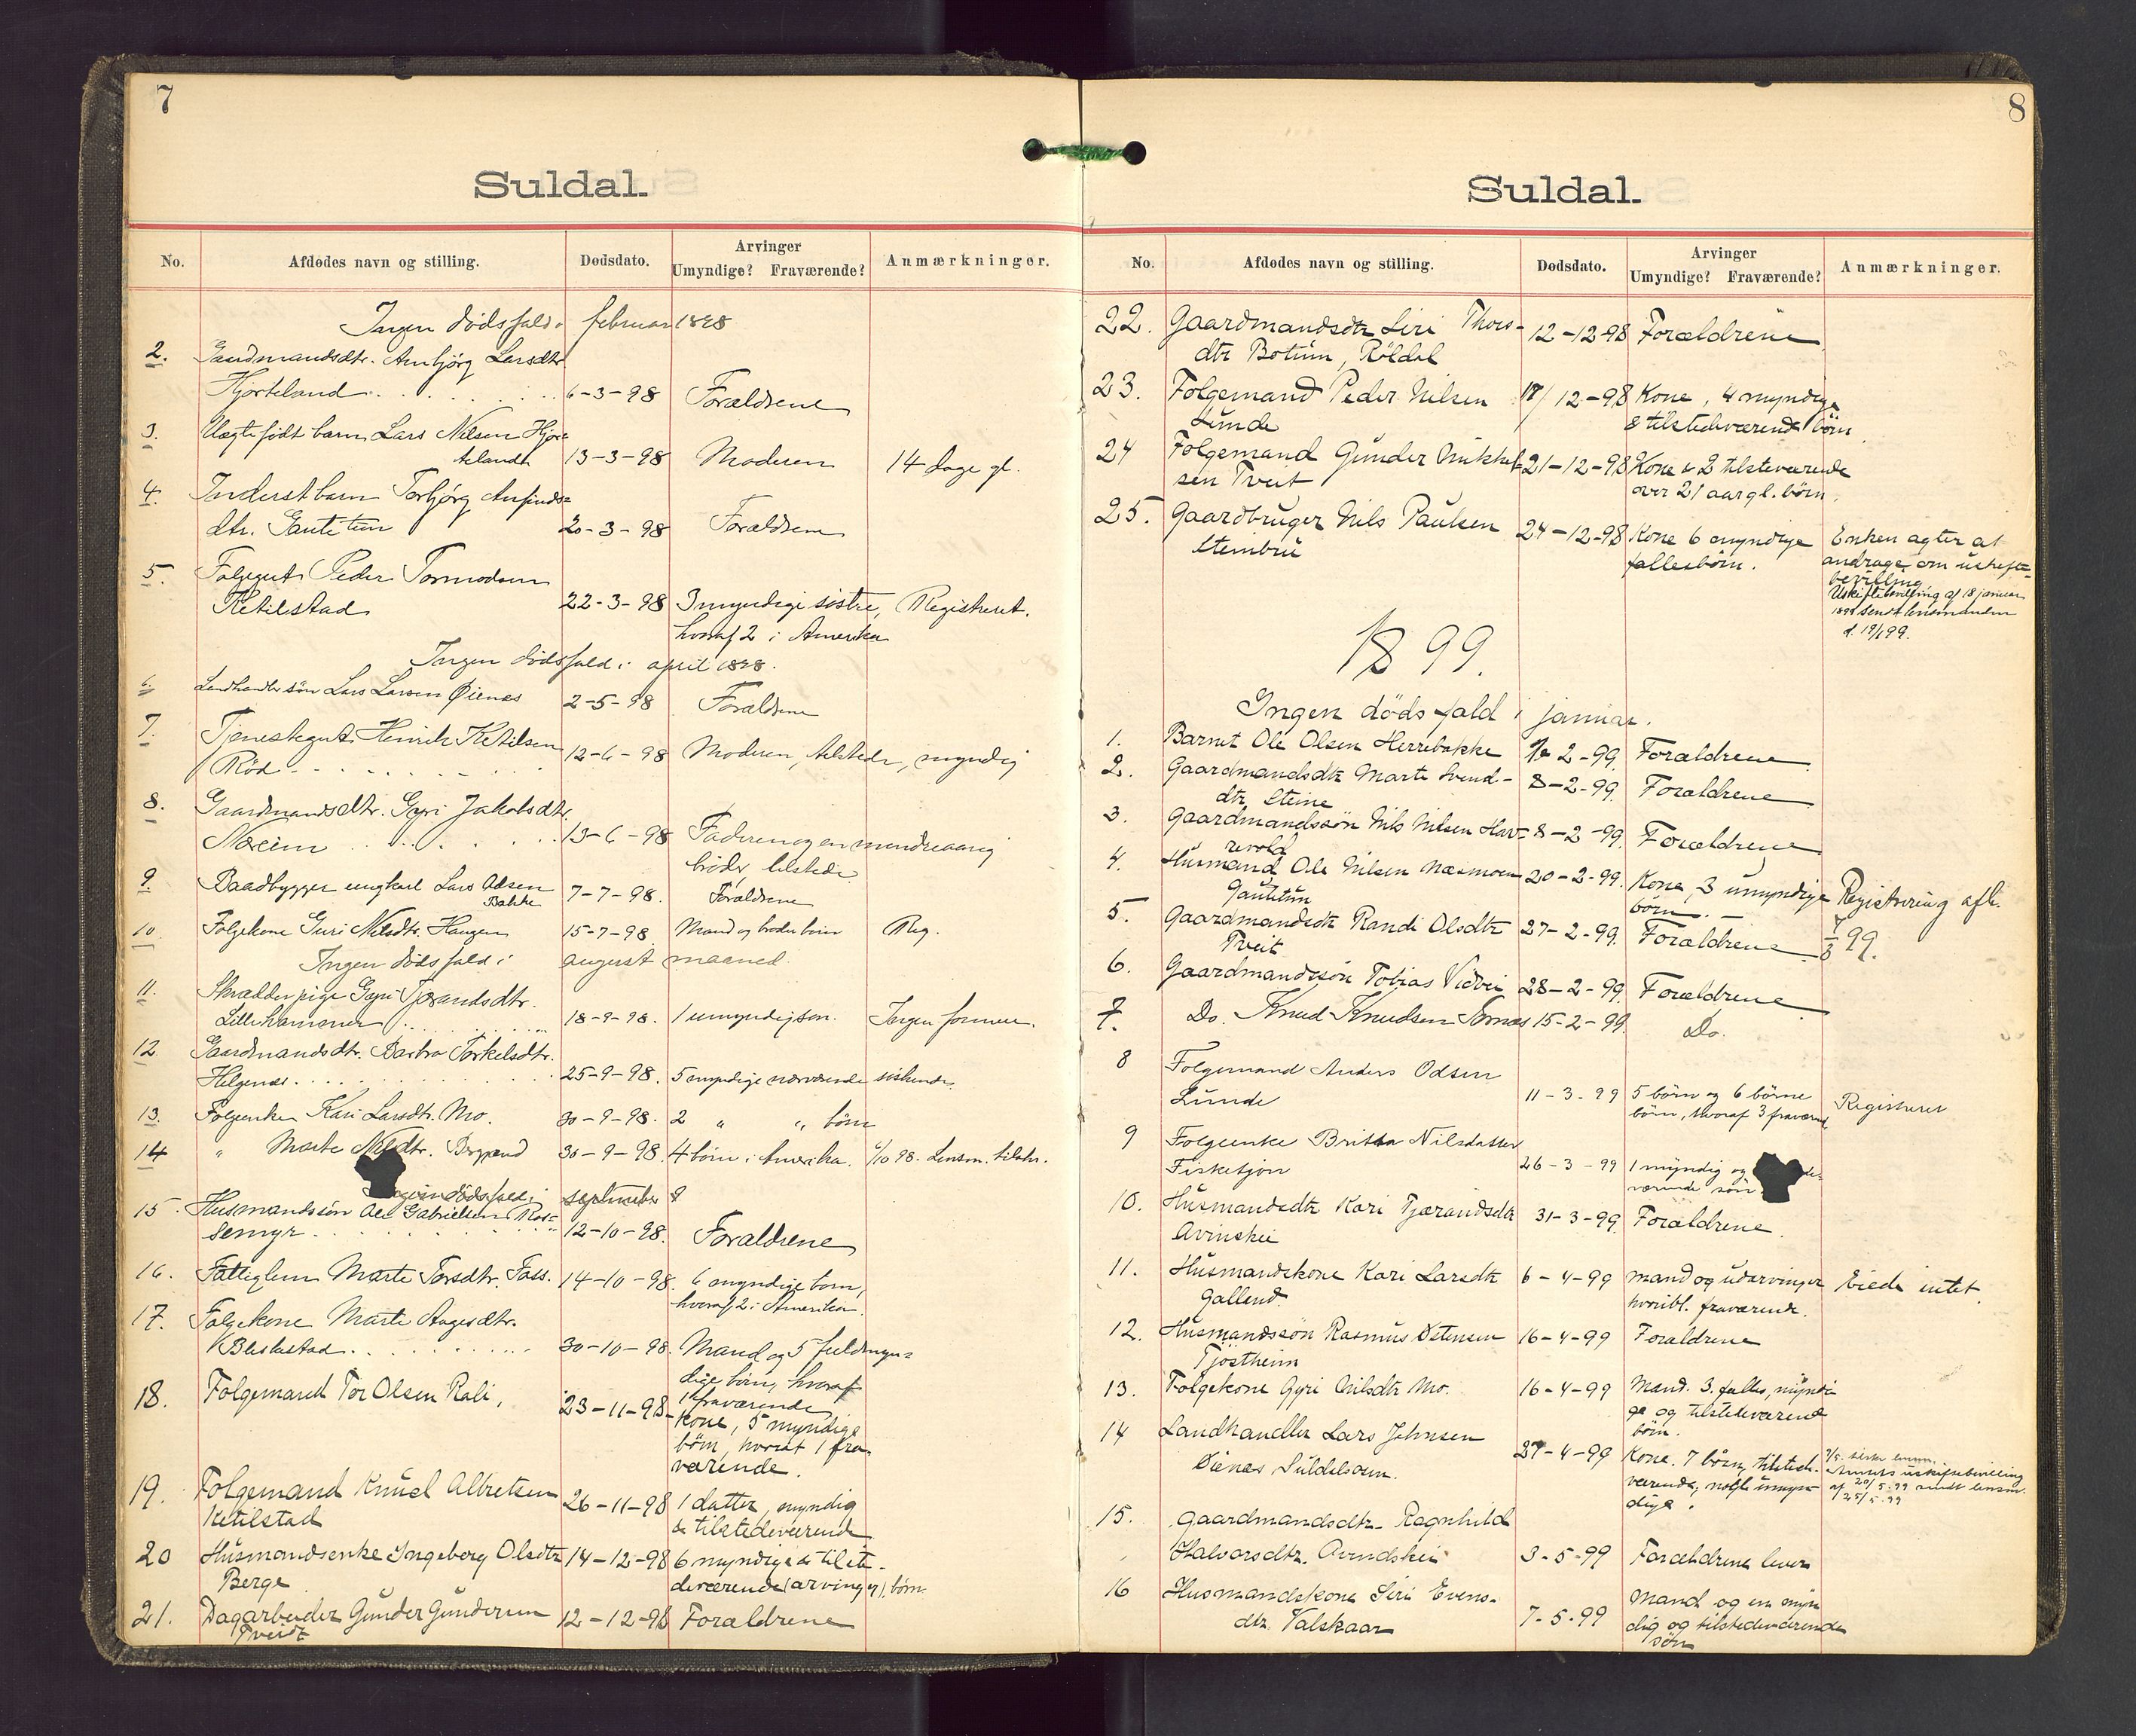 7
Suldal.
No. Afdødes navn og stilling. Dødsdato. Arvinger Umyndige? Fraværende? Anmærkninger.
Ingen dødsfald i februar 1898
2. Gaardmandsdtr. Anbjörg Larsdtr.
Hjorteland 6-3-98 Forældrene
3. Uægte födt barn Lars Nilsen Hjor=
telandt 13-3-98 Moderen 14 dage gl.
4. Inderstbarn Torbjörg
dtr. 20-3-98 Forældrene
5. Folgegut Peder Tormodsen
Ketilstad 22-3-98 3 myndige söstre, Registreret.
hvoraf 2 i Amerika
Ingen dödsfald i april 1898.
6. Landhandlersön Lars Larsen Øienæs 2-5-98 Forældrene
7. Tjenestegut Henrik Ketilsen
Röd 12-6-98 Moderen, tilstede, myndig
8. Gaardmandsdtr. Gyri Jakobsdtr.
Næreim 13-6-98 Faderen og en mindreaarig
broder, tilstede
9. Baadbygger ungkarl Lars Olsen
Bakke 7-7-98. Forældrene
10. Folgekone Guri Nilsdtr. Haugen 15-7-98 Mand og Reg.
Ingen dödsfald i august maaned.
11. Skrædderpige Gyri Tjerandsdtr.
Lillehammer 18-9-98. 1 umyndig sön. Ingen formue.
12. Gaardmandsdtr. Barbra Torkelsdtr.
Helgenæs 25-9-98. 5 myndige nærværende söskende
13. Folgeenke Kari Larsdtr. Mo. 30-9-98. 2 " " börn
14 " Marte Nilsdtr. 30-9-98. 4 börn i Amerika. 6/10 98. Lensm. tilskr.
Ingen dödsfald i september
15. Husmandssön Ole Gabrielsen Ros=
semyr 12-10-98. Forældrene
16. Fattiglem Marte Torsdtr. Foss. 14-10-98. 6 myndige børn,
hvoraf 2 i Amerika.
17. Folgekone Marte Aagesdtr.
Bleskestad 30-10-98. Mand og 5 fuldmyn=
dige börn, hvoraf
1 fraværende
18. Folgemand Tor Olsen Rali, 23-11-98- Kone, 5 myndige
börn, hvoraf 1 fra
værende.
19. Folgemand Knud Albretsen
Ketilstad 26-11-98 1 datter, myndig
& tilstedeværende
20 Husmandsenke Ingeborg Olsdtr 14-12-98 6 myndige & tilste-
Berge deværende (arvinger) börn
21. Dagarbeider Gunder Gundersen 12-12-98 Forældrene
Tveit
8
Suldal.
No. Afdødes navn og stilling. Dødsdato. Arvinger Umyndige? Fraværende? Anmærkninger.
22. Gaardmandsdtr Siri Thors- 12-12-98 Forældrene
dtr Botnen, Röldal
23. Folgemand Peder Nilsen 17/12-98 Kone, 4 myndige
Lunde & tilstedeværende börn
24 Folgemand Gunder Mikkel- 21-12-98 Kone & 2 tilsteværende
sen Tveit over 21 aar gl. börn.
25. Gaardbruger Nils Paulsen 24-12-98 Kone 6 myndige Enken agter at
Steinbru fællesbörn. andrage om uskifte-
bevilling.
Uskiftebevilling af 18 januar
1899 sendt lensmanden
d. 19/1 99.
1899.
Ingen dödsfald i januar.
1. Barnet Ole Olsen Herrebakke 2-99. Forældrene
2. Gaardmandsdtr Marte Svend- 8-2-99. Forældrene
dtr Steine
3. Gaardmandssön Nils Nilsen Hav- 8-2-99. Forældrene
revold
4. Husmand Ole Nilsen Næsmoen 20-2-99. Kone, 3 umyndige Registrering afh.
Gautetun börn. 7/3 99.
5. Gaardmandsdtr Randi Olsdtr 27-2-99. Forældrene
Tveit
6. Gaardmandssön Tobias Vidvei 28-2-99. Forældrene
7. Do. Knud Knudsen 15-2-99. Do.
8 Folgemand Anders Odsen
Lunde 11-3-99 5 börn og 6 börne
börn, hvoraf 3 fraværend Registreret
9 Folgeenke Britta Nilsdatter
Fisketjön 26-3-99 1 myndig og
værende sön
10. Husmandsdtr Kari Tjærandsdtr 31-3-99. Forældrene.
Avinskei
11. Husmandskone Kari Larsdtr 6-4-99 mand og udarvinger Eiede intet.
Gallend hvoribl. fraværende.
12. Husmandssön Rasmus Østensen 16-4-99 Forældrene
Tjöstheim
13. Folgekone Gyri Nilsdtr Mo. 16-4-99 Mand. 3. fælles, myndi
ge og tilstedeværende
börn.
14 Landhandler Lars Johnsen
Öienæs Suldalsosen. 27-4-99 Kone. 7 börn, tilstede-
værende, nogle umyn-
dige.
Amtets uskiftebevilling
af 20/5 99 sendt lensm.
25/5 99
15. Gaardmandsdtr. Ragnhild
Halvorsdtr. Avindskei 3-5-99 Forældrene lever
16 Husmandskone Siri Evens-
dtr. Valskaar 7-5-99 Mand og en myn
dig og tilstedeværende
sön